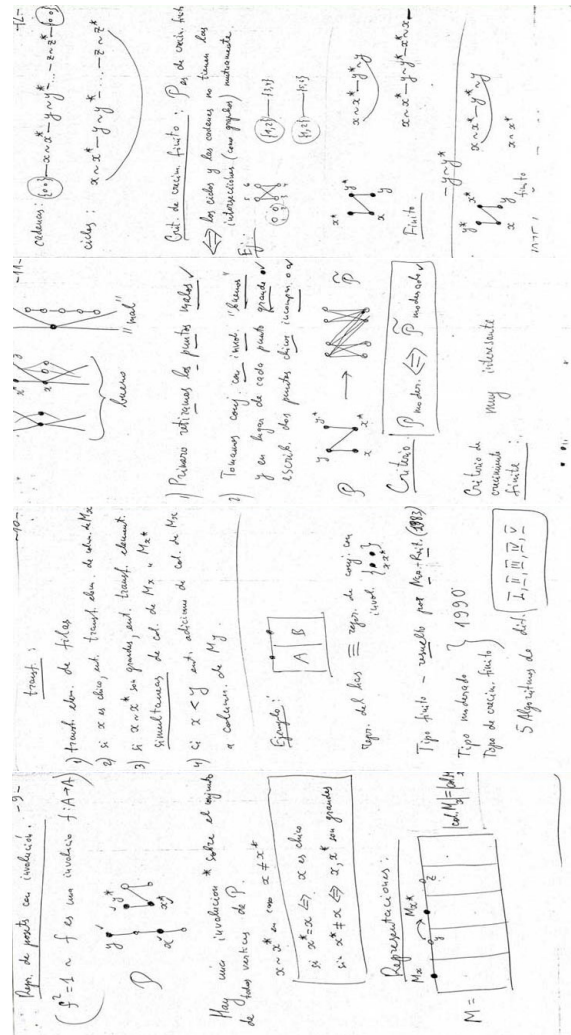 -9-
Repr. de posets con involución.
(f² = 1 ~ f es una involucio f: A→A)
y y*
x x*
P
Hay una involución * sobre el conjunto
de todos vertices de P.
x ~ x* en caso x ≠ x*
si x* = x ⇔ x es chico
si x* ≠ x ⇔ x, x* son grandes
Representaciones:
Mx y Mx* z
M =
-10-
transf.:
1) transf. elem. de filas
2) si x es chico, ent. transf. elem. de colum. de Mx
3) si x ~ x* son grandes, ent. transf. element.
simultaneas de col. de Mx y Mx*
4) si x < y ent. adiciones de col. de Mx
a column. de My.
Ejemplo:
A B
repr. del haz ≡ repr. de conj. con
invol. { x x* }
Tipo finito - resuelto por (1983)
Tipo moderado
Tipo de crecim. finito } 1990
5 Algoritmos de dif. I, II, III, IV, V
-11-
x* x
bueno
"mal"
1) Primero retiramos los puntos malos ✓
2) Tomamos conj. con invol. "buenos"
y en lugar de cada punto grande
escrib. dos puntos chicos incompar.
P y y* x x* → P̃
Criterio:
P moder. ⇔ P̃ moderado ✓
Criterio de
crecimiento
finito:
muy interesante
-12-
cadenas: {00} — x ~ x* — y ~ y* — ... — z ~ z* — {00}
ciclos: x ~ x* — y ~ y* — ... — z ~ z*
Crit. de crecim. finito: P es de crecim. finito
⇔ los ciclos y las cadenas no tienen las
intersecciones (como grafos) mutuamente.
Ej.:
5 6
3 4
1 2
{1,2} — {3,4}
{1,2} — {5,6}
x* y*
x y
x ~ x* — y* ~ y
Finito
x ~ x* — y ~ y* — x* ~ x —
— y ~ y*
y* x*
x y
x ~ x* — y* ~ y
finito
x ~ x*